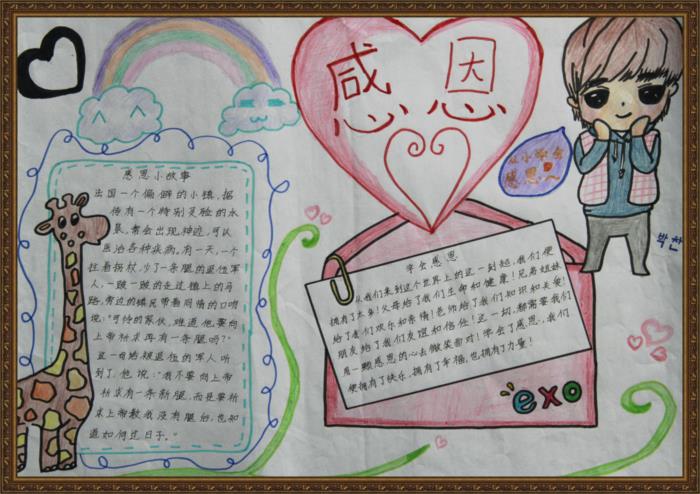 感恩
感恩小故事
法国一个偏僻的小镇,据
传有一个特别灵验的水
泉,常会出现神迹,可以
医治各种疾病。有一天,一个
拄着拐杖,少了一条腿的退伍军
人,一跛一跛的走过镇上的马
路,旁边的镇民带着同情的口吻
说:"可怜的家伙,难道他要向
上帝祈求再有一条腿吗?"
这一句话被退伍的军人听
到了,他说:"我不要向上帝
祈求有一条新腿,而是要祈
求上帝教我没有腿后,也知
道如何过日子。"
从小学会
感恩~
박찬
学会感恩
从我们来到这个世界上的这一刻起,我们便
拥有了太多!父母给了我们生命和健康!兄弟姐妹
给了我们欢乐和亲情!老师给了我们知识和关爱!
朋友给了我们友谊和信任!这一切,都需要我们
用一颗感恩的心去微笑面对!学会了感恩,我们
便拥有了快乐,拥有了幸福,也拥有了力量!
exo